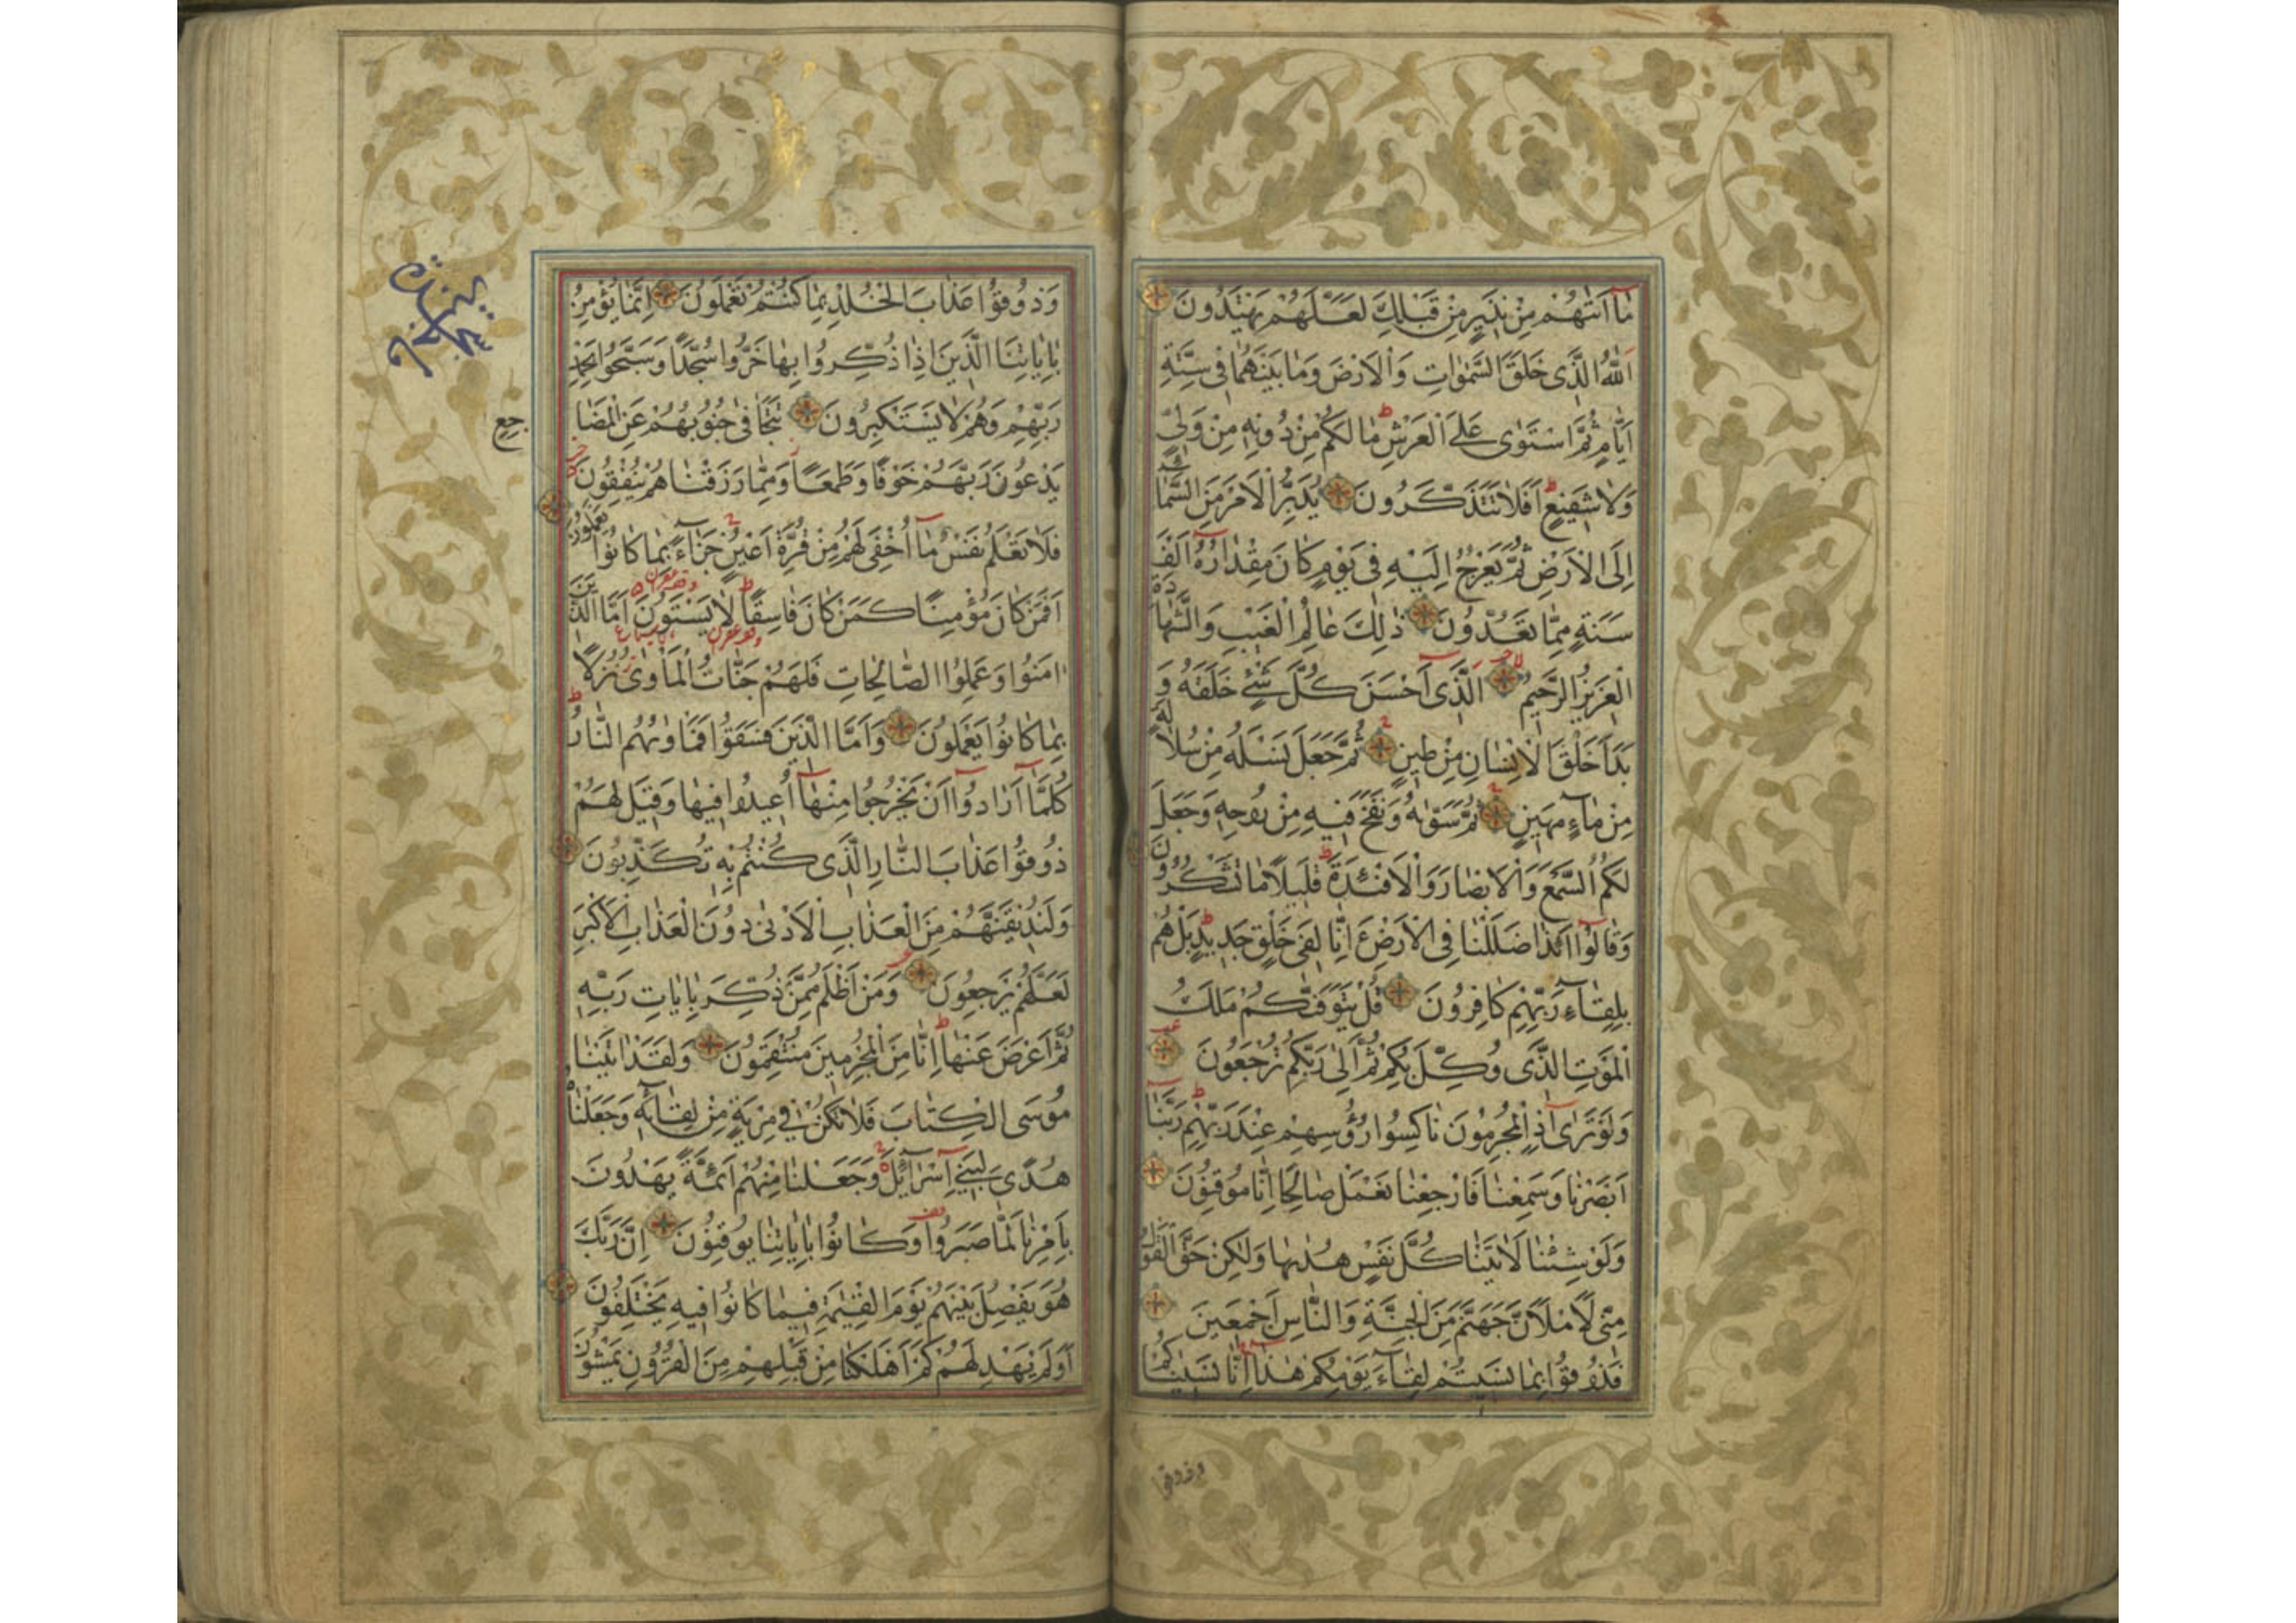 مَا اَتٰيهُمْ مِنْ نَذِيرٍ مِنْ قَبْلِكَ لَعَلَّهُمْ يَهْتَدُونَ
اَللّٰهُ الَّذِى خَلَقَ السَّمٰوَاتِ وَالْاَرْضَ وَمَا بَيْنَهُمَا فِى سِتَّةِ
اَيَّامٍ ثُمَّ اسْتَوٰى عَلَى الْعَرْشِ ط مَا لَكُمْ مِنْ دُونِهِ مِنْ وَلِىٍّ
وَلَا شَفِيعٍ ط اَفَلَا تَتَذَكَّرُونَ يُدَبِّرُ الْاَمْرَ مِنَ السَّمَاءِ
اِلَى الْاَرْضِ ثُمَّ يَعْرُجُ اِلَيْهِ فِى يَوْمٍ كَانَ مِقْدَارُهُ اَلْفَ
سَنَةٍ مِمَّا تَعُدُّونَ ذٰلِكَ عَالِمُ الْغَيْبِ وَالشَّهَادَةِ
الْعَزِيزُ الرَّحِيمُ لا الَّذِى اَحْسَنَ كُلَّ شَىْءٍ خَلَقَهُ وَ
بَدَاَ خَلْقَ الْاِنْسَانِ مِنْ طِينٍ ثُمَّ جَعَلَ نَسْلَهُ مِنْ سُلَالَةٍ
مِنْ مَاءٍ مَهِينٍ ثُمَّ سَوّٰيهُ وَنَفَخَ فِيهِ مِنْ رُوحِهِ وَجَعَلَ
لَكُمُ السَّمْعَ وَالْاَبْصَارَ وَالْاَفْئِدَةَ ط قَلِيلًا مَا تَشْكُرُونَ
وَقَالُوا اَئِذَا ضَلَلْنَا فِى الْاَرْضِ ءَ اِنَّا لَفِى خَلْقٍ جَدِيدٍ ط بَلْ هُمْ
بِلِقَاءِ رَبِّهِمْ كَافِرُونَ قُلْ يَتَوَفّٰيكُمْ مَلَكُ
الْمَوْتِ الَّذِى وُكِّلَ بِكُمْ ثُمَّ اِلٰى رَبِّكُمْ تُرْجَعُونَ
وَلَوْ تَرٰى اِذِ الْمُجْرِمُونَ نَاكِسُوا رُؤُسِهِمْ عِنْدَ رَبِّهِمْ ط رَبَّنَا
اَبْصَرْنَا وَسَمِعْنَا فَارْجِعْنَا نَعْمَلْ صَالِحًا اِنَّا مُوقِنُونَ
وَلَوْ شِئْنَا لَاٰتَيْنَا كُلَّ نَفْسٍ هُدٰيهَا وَلٰكِنْ حَقَّ الْقَوْلُ
مِنِّى لَاَمْلَاَنَّ جَهَنَّمَ مِنَ الْجِنَّةِ وَالنَّاسِ اَجْمَعِينَ
فَذُوقُوا بِمَا نَسِيتُمْ لِقَاءَ يَوْمِكُمْ هٰذَا اِنَّا نَسِينَاكُمْ
وذوقوا
وَذُوقُوا عَذَابَ الْخُلْدِ بِمَا كُنْتُمْ تَعْمَلُونَ اِنَّمَا يُؤْمِنُ
بِاٰيَاتِنَا الَّذِينَ اِذَا ذُكِّرُوا بِهَا خَرُّوا سُجَّدًا وَسَبَّحُوا بِحَمْدِ
رَبِّهِمْ وَهُمْ لَا يَسْتَكْبِرُونَ تَتَجَافٰى جُنُوبُهُمْ عَنِ الْمَضَاجِعِ
يَدْعُونَ رَبَّهُمْ خَوْفًا وَطَمَعًا وَمِمَّا رَزَقْنَاهُمْ يُنْفِقُونَ
فَلَا تَعْلَمُ نَفْسٌ مَا اُخْفِىَ لَهُمْ مِنْ قُرَّةِ اَعْيُنٍ جَزَاءً بِمَا كَانُوا يَعْمَلُونَ
اَفَمَنْ كَانَ مُؤْمِنًا كَمَنْ كَانَ فَاسِقًا ط لَا يَسْتَوُونَ اَمَّا الَّذِينَ
اٰمَنُوا وَعَمِلُوا الصَّالِحَاتِ فَلَهُمْ جَنَّاتُ الْمَأْوٰى نُزُلًا
بِمَا كَانُوا يَعْمَلُونَ وَاَمَّا الَّذِينَ فَسَقُوا فَمَأْوٰيهُمُ النَّارُ ط
كُلَّمَا اَرَادُوا اَنْ يَخْرُجُوا مِنْهَا اُعِيدُوا فِيهَا وَقِيلَ لَهُمْ
ذُوقُوا عَذَابَ النَّارِ الَّذِى كُنْتُمْ بِهِ تُكَذِّبُونَ
وَلَنُذِيقَنَّهُمْ مِنَ الْعَذَابِ الْاَدْنٰى دُونَ الْعَذَابِ الْاَكْبَرِ
لَعَلَّهُمْ يَرْجِعُونَ وَمَنْ اَظْلَمُ مِمَّنْ ذُكِّرَ بِاٰيَاتِ رَبِّهِ
ثُمَّ اَعْرَضَ عَنْهَا ط اِنَّا مِنَ الْمُجْرِمِينَ مُنْتَقِمُونَ وَلَقَدْ اٰتَيْنَا
مُوسَى الْكِتَابَ فَلَا تَكُنْ فِى مِرْيَةٍ مِنْ لِقَائِهِ وَجَعَلْنَاهُ
هُدًى لِبَنِى اِسْرَائِيلَ وَجَعَلْنَا مِنْهُمْ اَئِمَّةً يَهْدُونَ
بِاَمْرِنَا لَمَّا صَبَرُوا وَكَانُوا بِاٰيَاتِنَا يُوقِنُونَ اِنَّ رَبَّكَ
هُوَ يَفْصِلُ بَيْنَهُمْ يَوْمَ الْقِيٰمَةِ فِيمَا كَانُوا فِيهِ يَخْتَلِفُونَ
اَوَلَمْ يَهْدِ لَهُمْ كَمْ اَهْلَكْنَا مِنْ قَبْلِهِمْ مِنَ الْقُرُونِ يَمْشُونَ